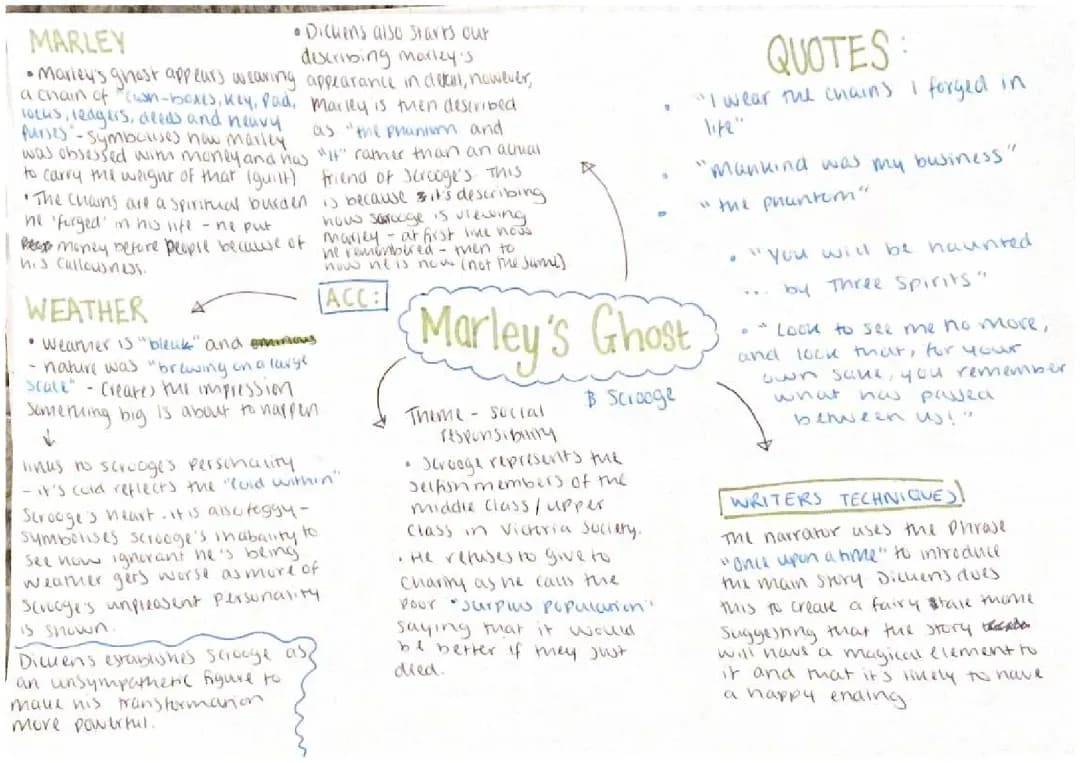 MARLEY
• Marley's ghost appears wearing
a chain of "cash-boxes, key, pad,
locks, ledgers, deeds and heavy
purses" - symbolises how Marley
was obsessed with money and has
to carry the weight of that (guilt)
• The chains are a spiritual burden
he 'forged' in his life - he put
money before people because of
his callousness.
• Dickens also starts out
describing marley's
appearance in detail, however,
Marley is then described
as "the phantom and
"it" rather than an actual
friend of Scrooge's. This
is because it's describing
how scrooge is viewing
Marley - at first like how
he remembered - then to
how he is now (not the same)
QUOTES:
• "I wear the chains I forged in
life"
• "Mankind was my business"
• "the phantom"
• "You will be haunted
... by Three Spirits"
• "Look to see me no more,
and look that, for your
own sake, you remember
what has passed
between us!"
WEATHER
• Weather is "bleak" and
- nature was "brewing on a large
scale" - Creates the impression
something big is about to happen
↓
links to scrooge's personality
- it's cold reflects the "cold within"
Scrooge's heart. it is also foggy -
symbolises scrooge's inabality to
see how ignorant he's being
weather gets worse as more of
Scrooge's unpleasent personality
is shown.
Dickens establishes Scrooge as
an unsympathetic figure to
make his transformation
more powerful.
ACC:
Marley's Ghost
Scrooge
Theme - social
responsibility
• Scrooge represents the
selfish members of the
middle class / upper
class in Victoria society.
• He refuses to give to
Charity as he calls the
poor "surplus population"
saying that it would
be better if they just
died.
WRITERS TECHNIQUES
The narrator uses the phrase
"Once upon a time" to introduce
the main story Dickens does
this to create a fairy tale theme
suggesting that the story
will have a magical element to
it and that it's likely to have
a happy ending